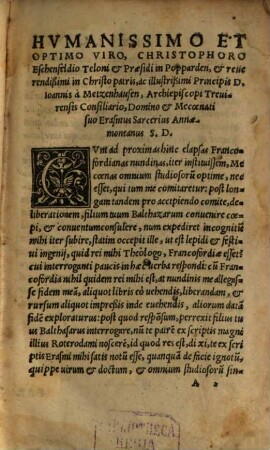 HVMANISSIMO ET
OPTIMO VIRO, CHRISTOPHORO
Eschenfeldio Teloni & Præsidi in Popparden, & reue
rendissimi in Christo patris, ac illustrissimi Principis D.
Ioannis à Metzenhausen, Archiepiscopi Treui-
rensis Consiliario, Domino & Mecœnati
suo Erasmus Sarcerius Annæ-
montanus S. D.
CVm ad proximas hinc elapsas Franco-
fordianas nundinas, iter instituissem, Me
cœnas omnium studiosorũ optime, nec
esset, qui tum me comitaretur: post lon-
gam tandem pro accipiendo comite, de-
liberationem, filium tuum Balthazarum conuenire cœ-
pi, & conuentum consulere, num expediret incognitũ
mihi iter subire, statim occepit ille, ut est lepidi & festi-
ui ingenij, quid rei mihi Theologo, Francfordiæ esset?
cui interroganti paucis in hæc uerba respondi: cũ Fran-
cofordia nihil quidem rei mihi est, at nundinis me allegas-
se fidem meã, aliquot libris eò uehendis, liberandam, &
rursum aliquot impressis inde euehendis, aliorum datã
fidẽ exploraturus: post quod respõsum, perrexit filius tu
us Balthasarus interrogare, nũ te parẽ ex scriptis magni
illius Roterodami noscerẽ, id quod res est, di xi, te ex scri
ptis Erasmi mihi satis notũ esse, quanquã de facie ignotũ,
quippe uirum & doctum, & omnium studiosorũ sin-
A 2
BIBLIOTHECA
REGIA